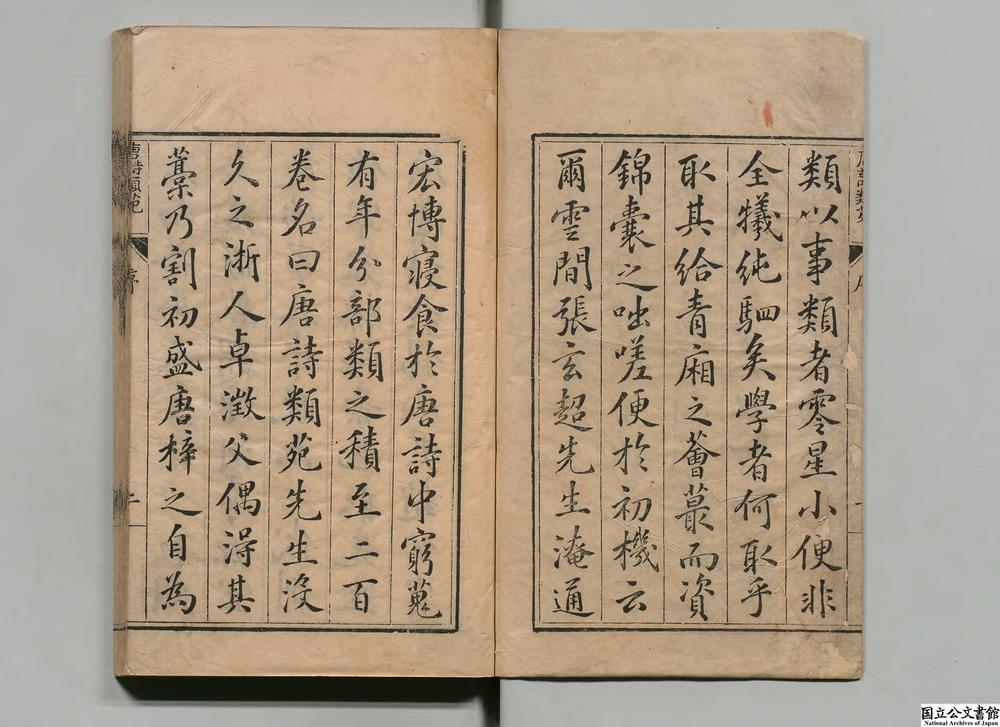 類以事類者零星小便非
全犧純駟矣學者何取乎
取其給青廂之薈蕞而資
錦囊之咄嗟便於初機云
爾雲間張玄超先生淹通
宏博寢食於唐詩中窮蒐
有年分部類之積至二百
卷名曰唐詩類苑先生沒
久之浙人卓澂父偶得其
藁乃割初盛唐梓之自為
唐詩類苑
序
国立公文書館
National Archives of Japan